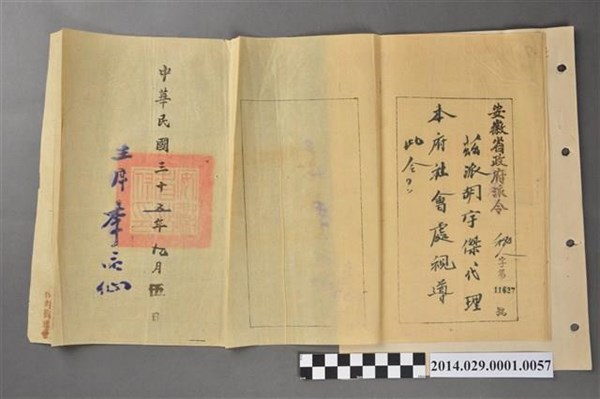 安徽省政府派令
秘人字第11637號
茲派胡宇傑代理
本府社會處視導
此令
中華民國三十五年九月伍日
主席李品仙
2014.029.0001.0057